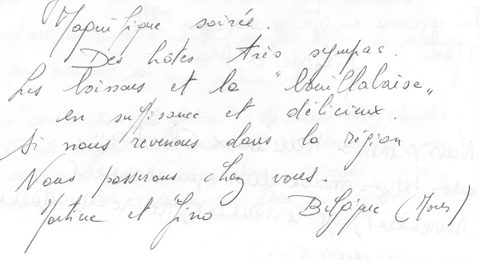 Magnifique soirée.
Des hôtes très sympas.
Les boissons et la "bouillabaise"
en suffisance et délicieux.
Si nous revenons dans la région
Nous passerons chez vous.
Martine et Gino Belgique (Mons)